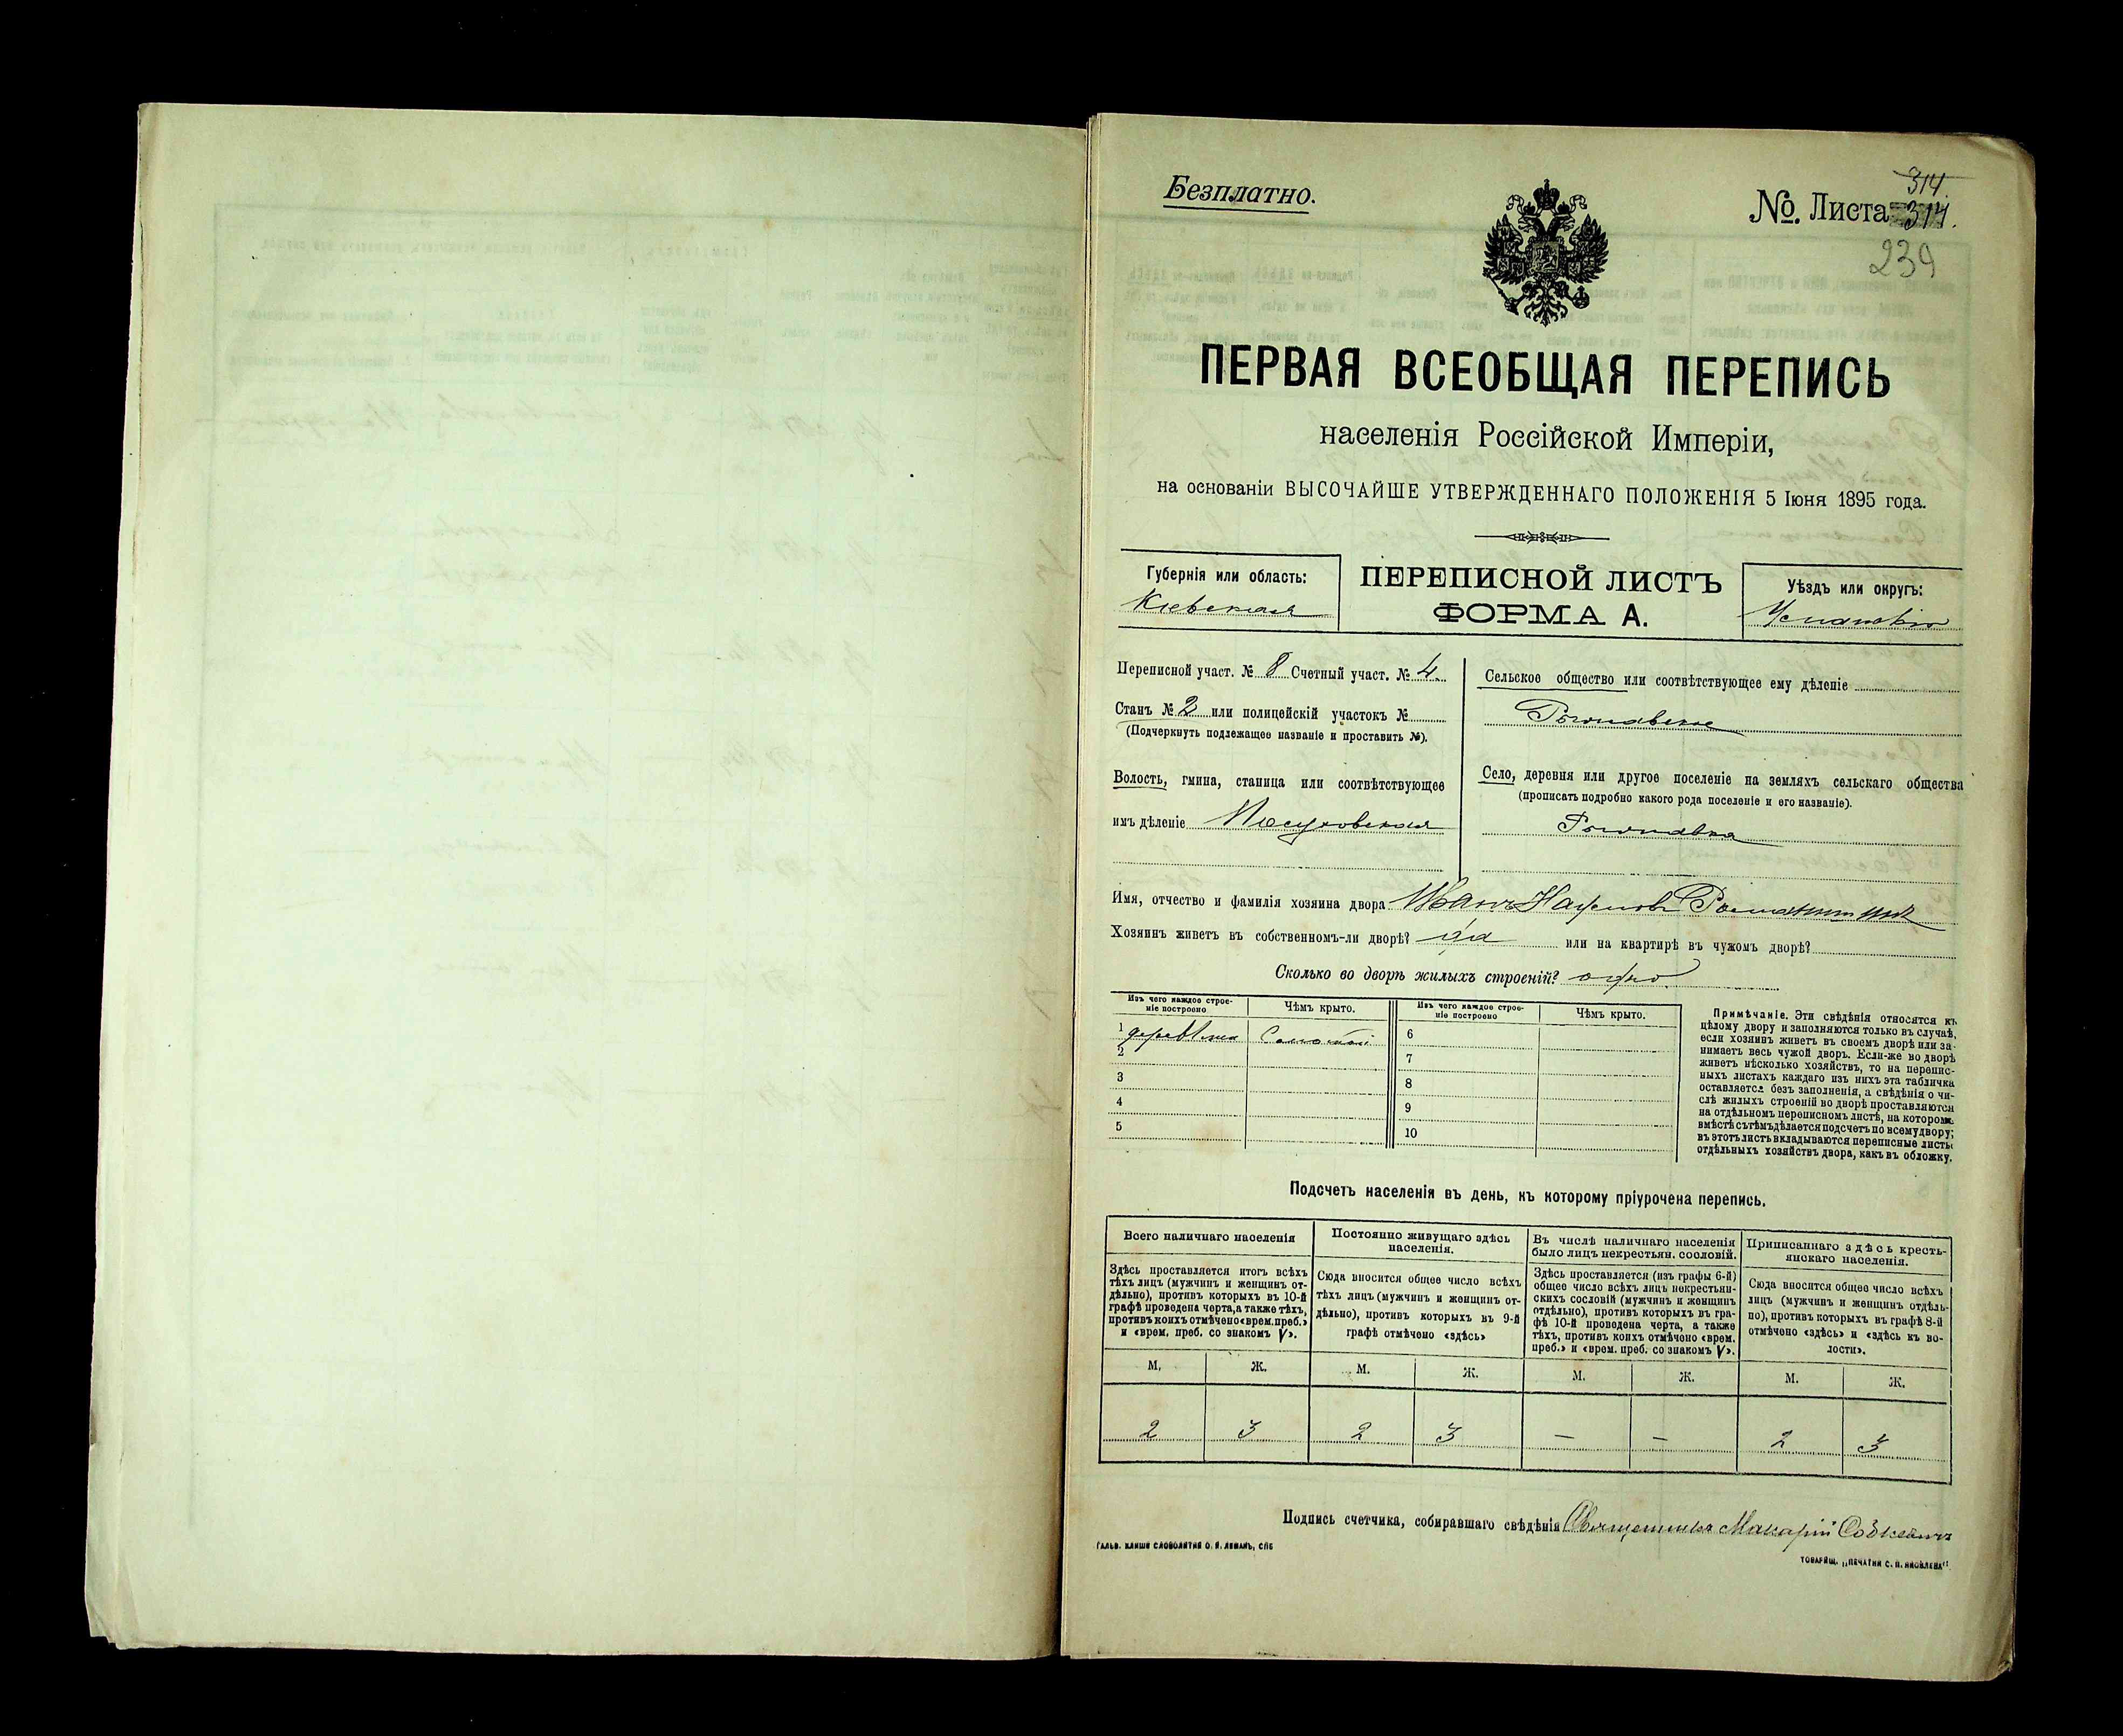 Безплатно.
No. Листа 314.
314.
239
ПЕРВАЯ ВСЕОБЩАЯ ПЕРЕПИСЬ
населенія Россійской Имперіи,
на основаніи ВЫСОЧАЙШЕ УТВЕРЖДЕННАГО ПОЛОЖЕНІЯ 5 Іюня 1895 года.
Губернія или область:
Кіевская
ПЕРЕПИСНОЙ ЛИСТЪ
ФОРМА А.
Уѣздъ или округъ:
Переписной участ. № 8 Счетный участ. № 4
Станъ № 2 или полицейскій участокъ №
(Подчеркнуть подлежащее названіе и проставить №).
Волость, гмина, станица или соотвѣтствующее
имъ дѣленіе
Сельское общество или соотвѣтствующее ему дѣленіе
Село, деревня или другое поселеніе на земляхъ сельскаго общества
(прописать подробно какого рода поселеніе и его названіе).
Имя, отчество и фамилія хозяина двора Иванъ Наумовъ
Хозяинъ живетъ въ собственномъ-ли дворѣ? да или на квартирѣ въ чужомъ дворѣ?
Сколько во дворѣ жилыхъ строеній? одно
Изъ чего каждое строе-
ніе построено
Чѣмъ крыто.
Изъ чего каждое строе-
ніе построено
Чѣмъ крыто.
1 Соломой
2
3
4
5
6
7
8
9
10
Примѣчаніе. Эти свѣдѣнія относятся къ
цѣлому двору и заполняются только въ случаѣ,
если хозяинъ живетъ въ своемъ дворѣ или за-
нимаетъ весь чужой дворъ. Если-же во дворѣ
живетъ нѣсколько хозяйствъ, то на перепис-
ныхъ листахъ каждаго изъ нихъ эта табличка
оставляется безъ заполненія, а свѣдѣнія о чи-
слѣ жилыхъ строеній во дворѣ проставляются
на отдѣльномъ переписномъ листѣ, на которомъ
вмѣстѣ съ тѣмъ дѣлается подсчетъ по всему двору;
въ этотъ листъ вкладываются переписные листы
отдѣльныхъ хозяйствъ двора, какъ въ обложку.
Подсчетъ населенія въ день, къ которому пріурочена перепись.
Всего наличнаго населенія
Здѣсь проставляется итогъ всѣхъ
тѣхъ лицъ (мужчинъ и женщинъ от-
дѣльно), противъ которыхъ въ 10-й
графѣ проведена черта, а также тѣхъ,
противъ коихъ отмѣчено «врем. преб.»
и «врем. преб. со знакомъ V».
Постоянно живущаго здѣсь
населенія.
Сюда вносится общее число всѣхъ
тѣхъ лицъ (мужчинъ и женщинъ от-
дѣльно), противъ которыхъ въ 9-й
графѣ отмѣчено «здѣсь»
Въ числѣ наличнаго населенія
было лицъ некрестьян. сословій.
Здѣсь проставляется (изъ графы 6-й)
общее число всѣхъ лицъ некрестьян-
скихъ сословій (мужчинъ и женщинъ
отдѣльно), противъ которыхъ въ гра-
фѣ 10-й проведена черта, а также
тѣхъ, противъ коихъ отмѣчено «врем.
преб.» и «врем. преб. со знакомъ V».
Приписаннаго здѣсь кресть-
янскаго населенія.
Сюда вносится общее число всѣхъ
лицъ (мужчинъ и женщинъ отдѣль-
но), противъ которыхъ въ графѣ 8-й
отмѣчено «здѣсь» и «здѣсь къ во-
лости».
М. Ж. М. Ж. М. Ж. М. Ж.
2 3 2 3 — — 2 3
Подпись счетчика, собиравшаго свѣдѣнія Священникъ Макарій
ГАЛЬВ. КЛИШЕ СЛОВОЛИТНИ О. И. ЛЕМАНЪ, СПБ
ТОВАРИЩ. „ПЕЧАТНИ С. П. ЯКОВЛЕВА“